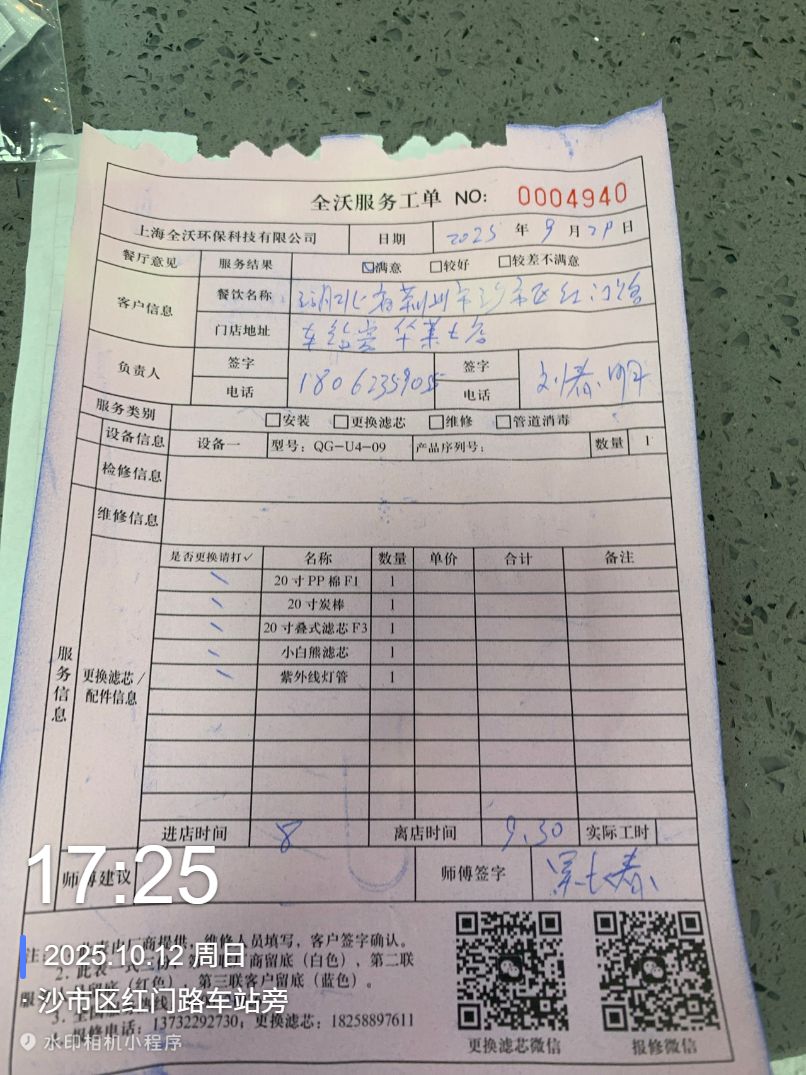 全沃服务工单 NO: 0004940
上海全沃环保科技有限公司 日期 2025 年 9 月 29 日
餐厅意见 服务结果 ☑满意 □较好 □较差不满意
客户信息 餐饮名称 湖北省荆州市沙市区红门路
门店地址 车站旁华莱士店
负责人 签字 签字
电话 18062359055 电话 刘春明
服务类别 □安装 □更换滤芯 □维修 □管道消毒
设备信息 设备一 型号: QG-U4-09 产品序列号: 数量 1
检修信息
维修信息
服务信息
更换滤芯/配件信息
是否更换请打✓ 名称 数量 单价 合计 备注
20寸PP棉F1 1
20寸炭棒 1
20寸叠式滤芯F3 1
小白熊滤芯 1
紫外线灯管 1
进店时间 8 离店时间 9.30 实际工时
师傅建议 师傅签字
17:25
注
厂商提供，维修人员填写，客户签字确认。
2025.10.12 周日
2. 此表一式三份，第 商留底（白色），第二联
（红色） 第三联客户留底（蓝色）。
沙市区红门路车站旁
3.
报修电话: 13732292730; 更换滤芯: 18258897611
水印相机小程序
更换滤芯微信 报修微信